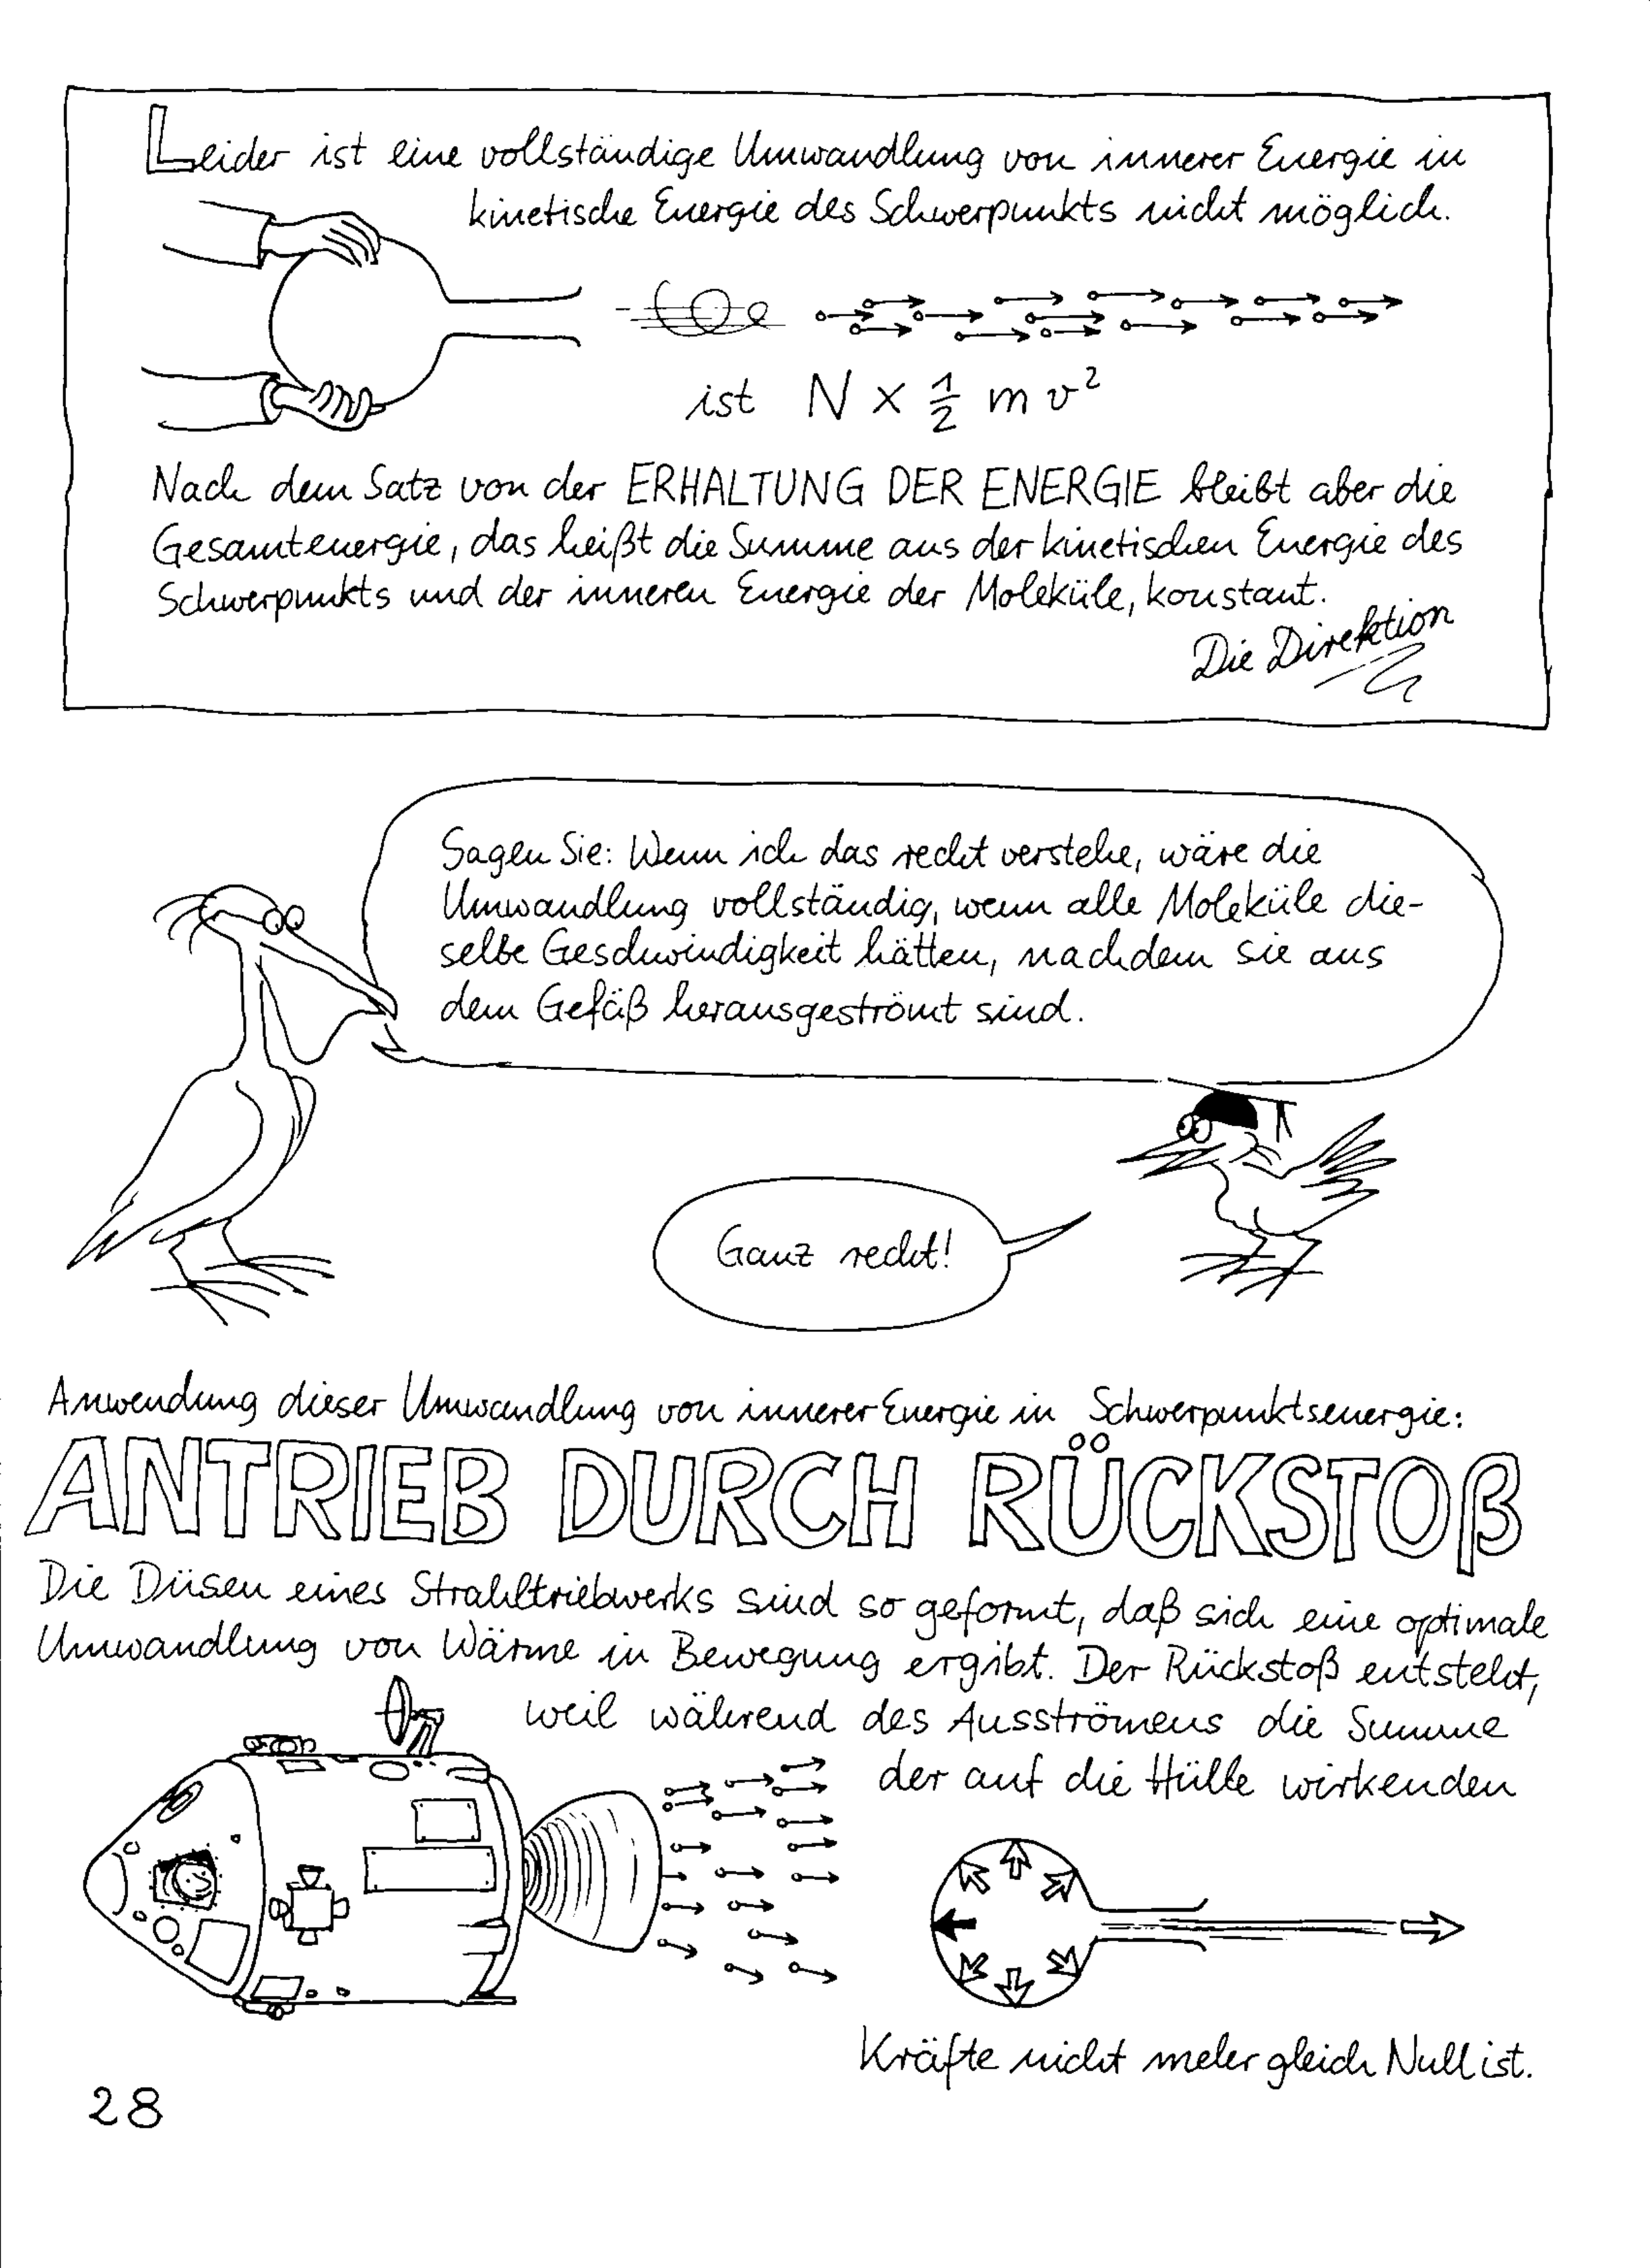 Leider ist eine vollständige Umwandlung von innerer Energie in
kinetische Energie des Schwerpunkts nicht möglich.
ist N × 1/2 m v²
Nach dem Satz von der ERHALTUNG DER ENERGIE bleibt aber die
Gesamtenergie, das heißt die Summe aus der kinetischen Energie des
Schwerpunkts und der inneren Energie der Moleküle, konstant.
Die Direktion
Sagen Sie: Wenn ich das recht verstehe, wäre die
Umwandlung vollständig, wenn alle Moleküle die-
selbe Geschwindigkeit hätten, nachdem sie aus
dem Gefäß herausgeströmt sind.
Ganz recht!
Anwendung dieser Umwandlung von innerer Energie in Schwerpunktsenergie:
ANTRIEB DURCH RÜCKSTOß
Die Düsen eines Strahltriebwerks sind so geformt, daß sich eine optimale
Umwandlung von Wärme in Bewegung ergibt. Der Rückstoß entsteht,
weil während des Ausströmens die Summe
der auf die Hülle wirkenden
Kräfte nicht mehr gleich Null ist.
28